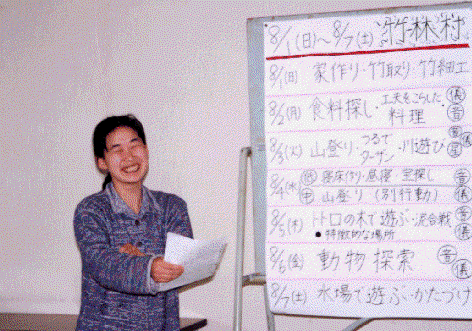 8/1(日)〜8/7(土) 竹林村
8/1(日) 家作り・竹取り・竹細工
8/2(月) 食料探し・工夫をこらした料理 儀 音
8/3(火) 山登り・つるでターザン・川遊び 音 儀 星
8/4(水) 寝床作り・昼寝・宝探し 音
中 山登り(別行動) 儀
8/5(木) トトロの木で遊ぶ・泥合戦 音
●特徴的な場所 儀
8/6(金) 動物探索 音 儀
8/7(土) 水場で遊ぶ・かたづけ